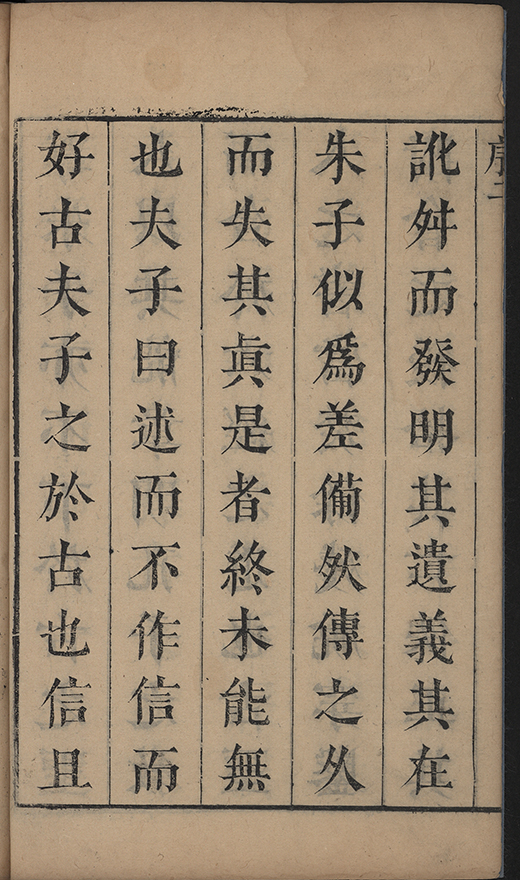 序二
訛舛而發明其遺義其在
朱子似爲差備然傳之乆
而失其眞是者終未能無
也夫子曰述而不作信而
好古夫子之於古也信且